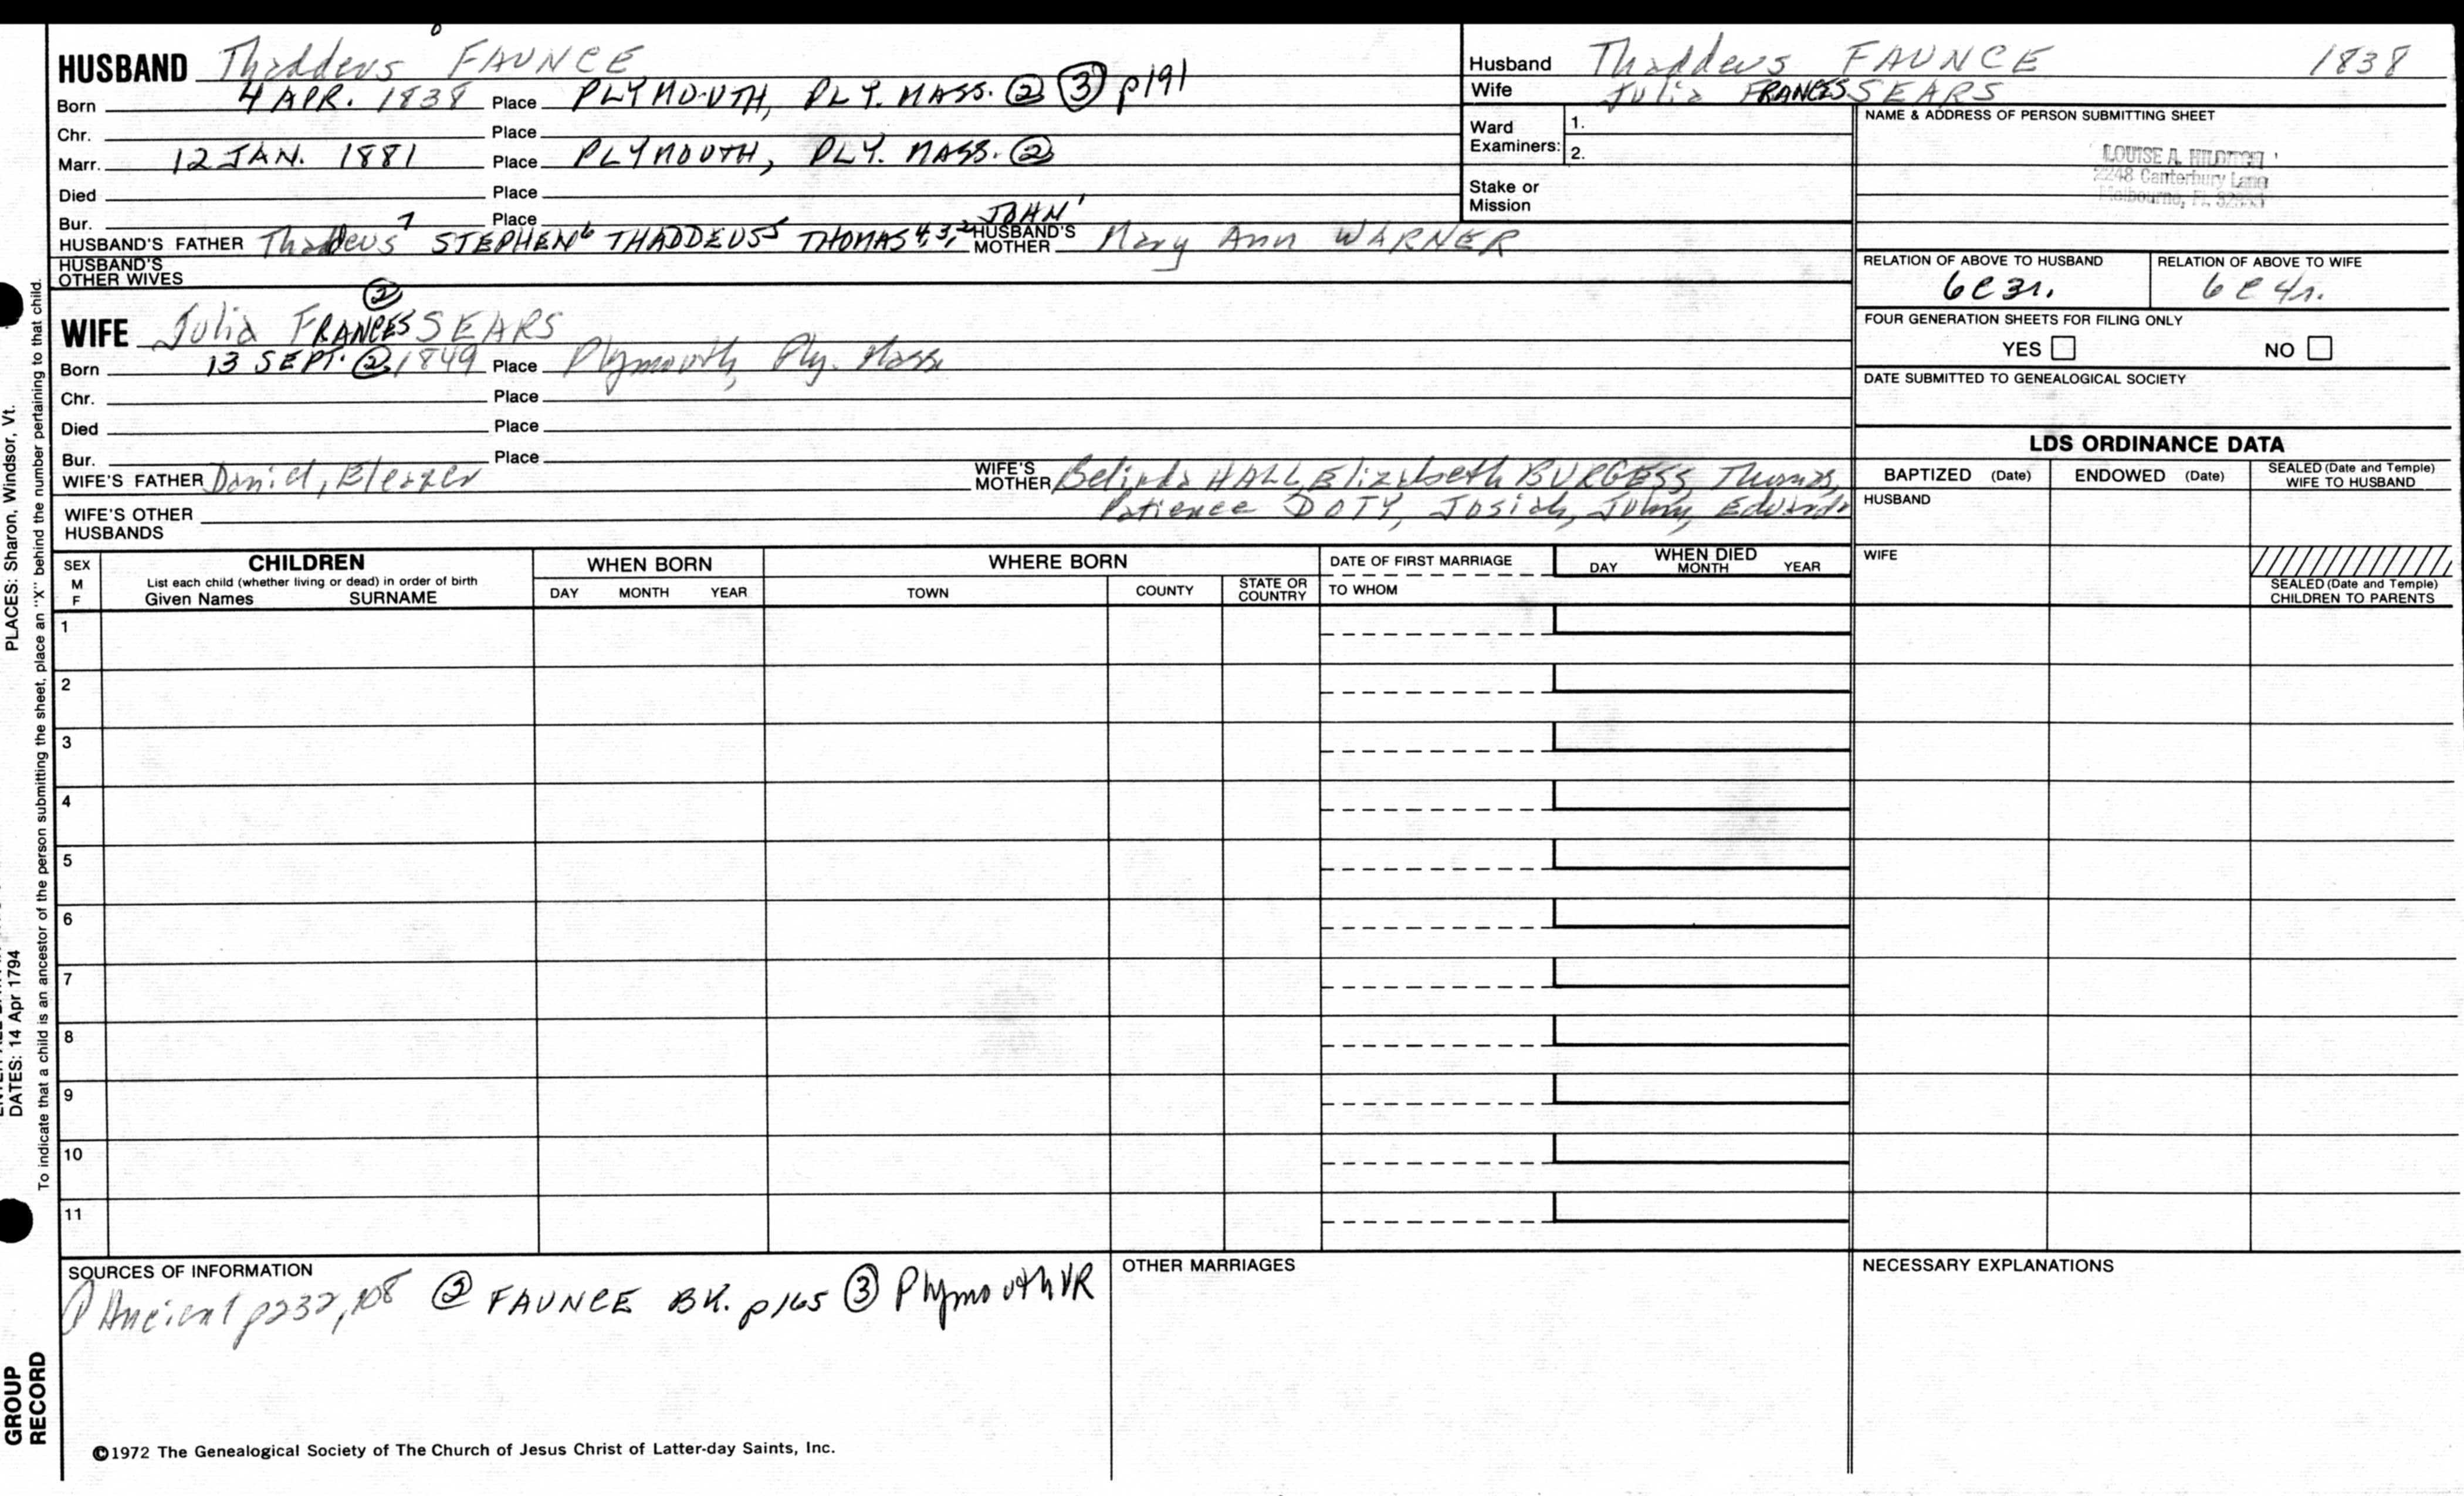 HUSBAND Thaddeus FAUNCE
Born 4 APR. 1838 Place PLYMOUTH, PLY. MASS. ② ③ p191
Chr. Place
Marr. 12 JAN. 1881 Place PLYMOUTH, PLY. MASS. ②
Died Place
Bur. Place
HUSBAND'S FATHER Thaddeus⁷ STEPHEN⁶ THADDEUS⁵ THOMAS⁴,³,² JOHN¹ HUSBAND'S MOTHER Mary Ann WARNER
HUSBAND'S OTHER WIVES
WIFE Julia FRANCES ② SEARS
Born 13 SEPT. ② 1849 Place Plymouth, Ply. Mass
Chr. Place
Died Place
Bur. Place
WIFE'S FATHER Daniel, Eleazer WIFE'S MOTHER Belinda HALL, Elizabeth BURGESS, Thomas,
Patience DOTY, Josiah, John, Edward
WIFE'S OTHER HUSBANDS
Husband Thaddeus FAUNCE 1838
Wife Julia FRANCES SEARS
Ward Examiners: 1.
2.
Stake or Mission
NAME & ADDRESS OF PERSON SUBMITTING SHEET
LOUISE A.
2248 Canterbury Lane
Melbourne, Fl.
RELATION OF ABOVE TO HUSBAND RELATION OF ABOVE TO WIFE
6C3r. 6C4r.
FOUR GENERATION SHEETS FOR FILING ONLY
YES NO
DATE SUBMITTED TO GENEALOGICAL SOCIETY
LDS ORDINANCE DATA
BAPTIZED (Date) ENDOWED (Date) SEALED (Date and Temple) WIFE TO HUSBAND
HUSBAND
WIFE
SEALED (Date and Temple) CHILDREN TO PARENTS
SEX M F
CHILDREN
List each child (whether living or dead) in order of birth
Given Names SURNAME
WHEN BORN
DAY MONTH YEAR
WHERE BORN
TOWN COUNTY STATE OR COUNTRY
DATE OF FIRST MARRIAGE
TO WHOM
WHEN DIED
DAY MONTH YEAR
1
2
3
4
5
6
7
8
9
10
11
SOURCES OF INFORMATION
① Ancient p232, 108 ② FAUNCE BK. p165 ③ Plymouth VR
OTHER MARRIAGES
NECESSARY EXPLANATIONS
©1972 The Genealogical Society of The Church of Jesus Christ of Latter-day Saints, Inc.
PLACES: Sharon, Windsor, Vt.
DATES: 14 Apr 1794
To indicate that a child is an ancestor of the person submitting the sheet, place an "X" behind the number pertaining to that child.
GROUP
RECORD